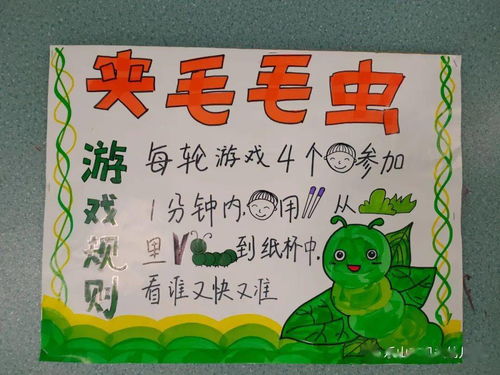 夹毛毛虫
游戏规则
每轮游戏4个参加
1分钟内，用从
里到纸杯中，
看谁又快又准